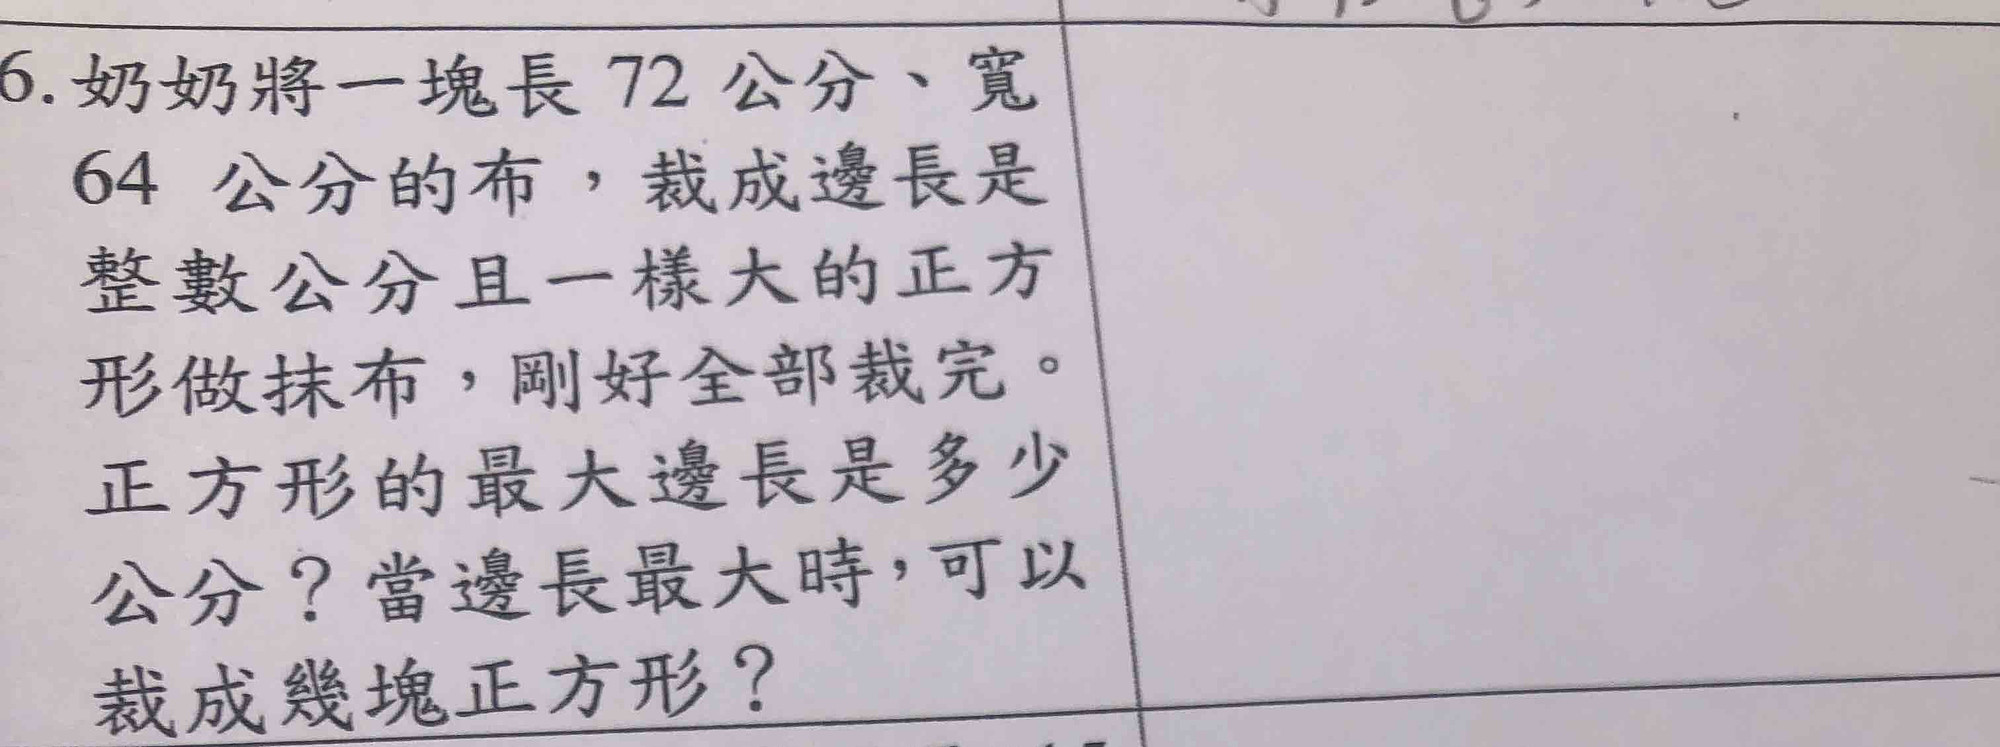 6.奶奶將一塊長 72 公分、寬
64 公分的布，裁成邊長是
整數公分且一樣大的正方
形做抹布，剛好全部裁完。
正方形的最大邊長是多少
公分？當邊長最大時，可以
裁成幾塊正方形？